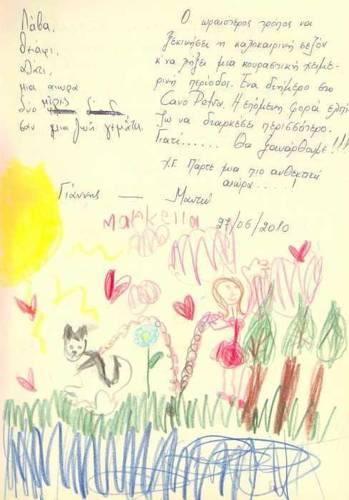 Λάβα,
θυμάρι,
σπίτι,
μια αιώρα
δύο μέρες
σαν μια ζωή γεμάτη.
Ο ωραιότερος τρόπος να
ξεκινήσει η καλοκαιρινή σεζόν
κ να λήξει μια κουραστική χειμε-
ρινή περίοδος. Ένα διήμερο στο
Cavo Ρεντι. Η επόμενη φορά ελπί-
ζω να διαρκέσει περισσότερο.
Γιατί...... Θα ξανάρθουμε!!!
Υ.Γ. Πάρτε μια πιο ανθεκτική
αιώρα.....!
Γιάννης — Μαντώ
Markella
27/06/2010